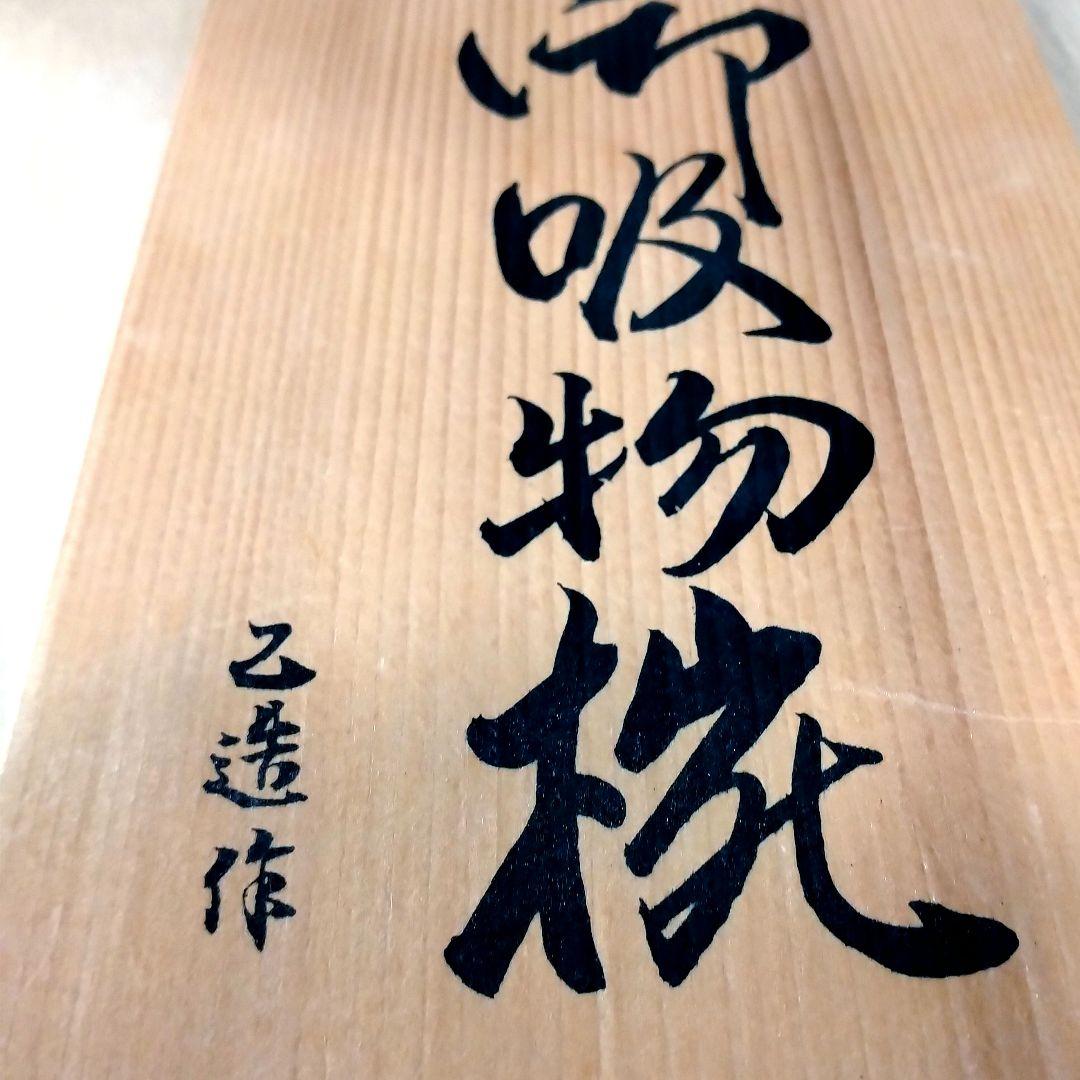 御吸物椀
乙造作